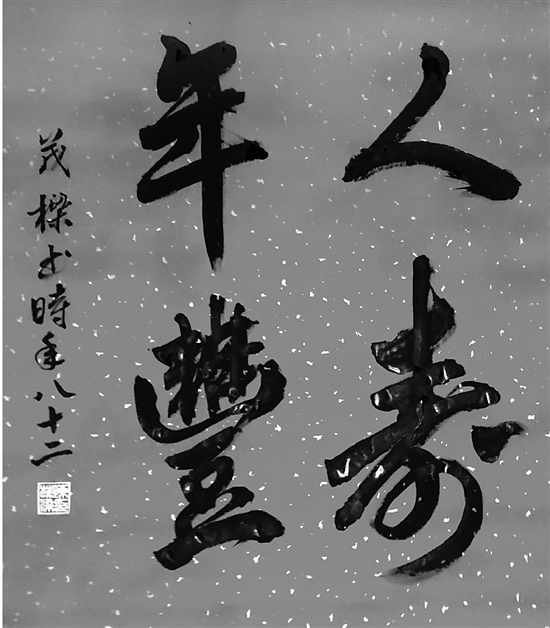 人壽
年豐
茂櫟书時年八十二